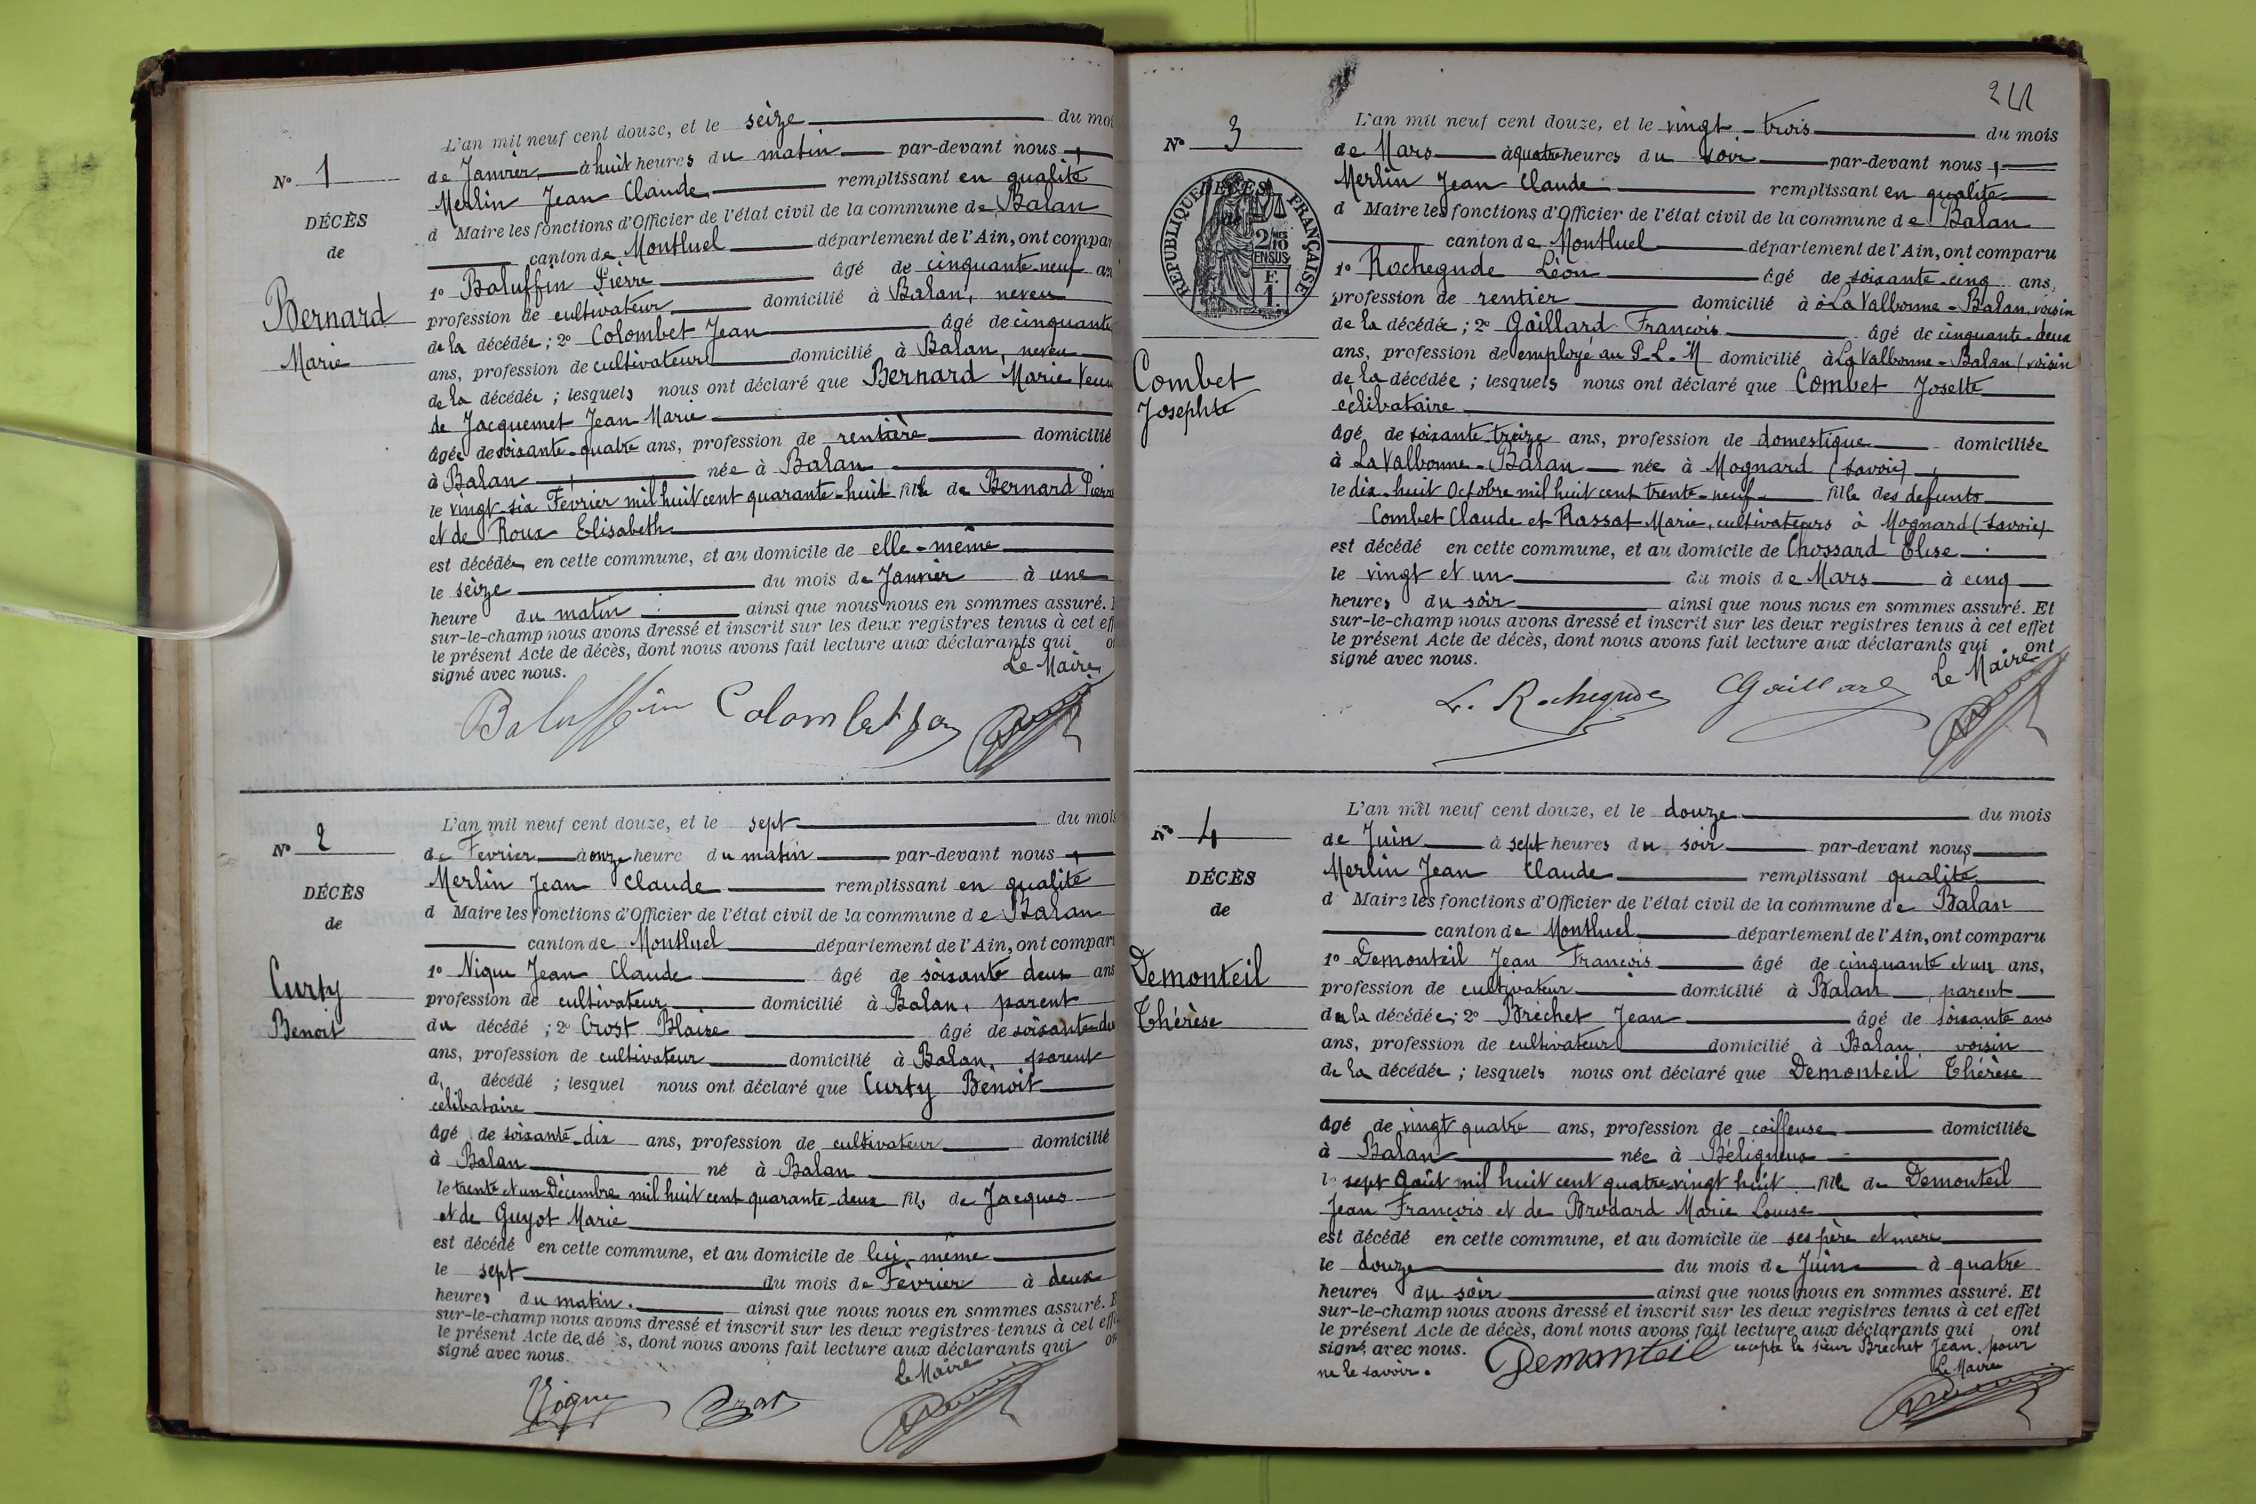 N° 1
DÉCÈS
de
Bernard
Marie
L'an mil neuf cent douze, et le seize du moi
de Janvier, à huit heures du matin par-devant nous,
Merlin Jean Claude, remplissant en qualité
d Maire les fonctions d'Officier de l'état civil de la commune de Balan
canton de Montluel département de l'Ain, ont compar
1° Baluffin Pierre âgé de cinquante-neuf an
profession de cultivateur domicilié à Balan, neveu
de la décédée; 2° Colombet Jean âgé de cinquante
ans, profession de cultivateur domicilié à Balan, neveu
de la décédée; lesquels nous ont déclaré que Bernard Marie Veuve
de Jacquemet Jean Marie
âgée de soixante-quatre ans, profession de rentière domicilié
à Balan née à Balan
le vingt-six Février mil huit cent quarante-huit fille de Bernard Pierre
et de Roux Elisabeth
est décédée en cette commune, et au domicile de elle-même
le seize du mois de Janvier à une
heure du matin ainsi que nous nous en sommes assuré. E
sur-le-champ nous avons dressé et inscrit sur les deux registres tenus à cet eff
le présent Acte de décès, dont nous avons fait lecture aux déclarants qui o
signé avec nous.
Le Maire
Baluffin Colombet Jean
N° 2
DÉCÈS
de
Curty
Benoit
L'an mil neuf cent douze, et le sept du mois
de Février à onze heure du matin par-devant nous,
Merlin Jean Claude remplissant en qualité
d Maire les fonctions d'Officier de l'état civil de la commune de Balan
canton de Montluel département de l'Ain, ont compar
1° Nique Jean Claude âgé de soixante deux ans
profession de cultivateur domicilié à Balan, parent
du décédé; 2° Crost Blaise âgé de soixante-deu
ans, profession de cultivateur domicilié à Balan, parent
d décédé; lesquel nous ont déclaré que Curty Benoit
celibataire
âgé de soixante-dix ans, profession de cultivateur domicilié
à Balan né à Balan
le trente et un Décembre mil huit cent quarante-deux fils de Jacques
et de Guyot Marie
est décédé en cette commune, et au domicile de lui-même
le sept du mois de Février à deux
heures du matin. ainsi que nous nous en sommes assuré. E
sur-le-champ nous avons dressé et inscrit sur les deux registres tenus à cet eff
le présent Acte de dé s, dont nous avons fait lecture aux déclarants qui on
signé avec nous.
Le Maire
Nique Crost
N° 3
DÉCÈS
de
RÉPUBLIQUE FRANÇAISE
2/10 MES
EN SUS
F.
1.
Combet
Josephte
L'an mil neuf cent douze, et le vingt-trois du mois
de Mars à quatre heures du soir par-devant nous,
Merlin Jean Claude remplissant en qualité
d Maire les fonctions d'Officier de l'état civil de la commune de Balan
canton de Montluel département de l'Ain, ont comparu
1° Rochegude Léon âgé de soixante-cinq ans,
profession de rentier domicilié à à La Valbonne-Balan, voisin
de la décédée; 2° Gaillard François âgé de cinquante-deux
ans, profession de employé au P-L-M domicilié à La Valbonne-Balan, voisin
de la décédée; lesquels nous ont déclaré que Combet Josette
célibataire
âgé de soixante treize ans, profession de domestique domiciliée
à La Valbonne-Balan née à Mognard (Savoie),
le dix-huit Octobre mil huit cent trente-neuf fille des defunts
Combet Claude et Rassat Marie, cultivateurs à Mognard (Savoie)
est décédé en cette commune, et au domicile de Chossard Elise
le vingt et un du mois de Mars à cinq
heures du soir ainsi que nous nous en sommes assuré. Et
sur-le-champ nous avons dressé et inscrit sur les deux registres tenus à cet effet
le présent Acte de décès, dont nous avons fait lecture aux déclarants qui ont
signé avec nous.
Le Maire
L. Rochegude Gaillard
N° 4
DÉCÈS
de
Demonteil
Thérèse
L'an mil neuf cent douze, et le douze du mois
de Juin à sept heures du soir par-devant nous,
Merlin Jean Claude remplissant qualité
d Maire les fonctions d'Officier de l'état civil de la commune de Balan
canton de Montluel département de l'Ain, ont comparu
1° Demonteil Jean François âgé de cinquante et un ans,
profession de cultivateur domicilié à Balan, parent
de la décédée; 2° Bréchet Jean âgé de soixante ans
ans, profession de cultivateur domicilié à Balan voisin
de la décédée; lesquels nous ont déclaré que Demonteil Thérèse
âgé de vingt quatre ans, profession de coiffeuse domiciliée
à Balan née à Béligneux
le sept Août mil huit cent quatre vingt huit fille de Demonteil
Jean François et de Brodard Marie Louise
est décédé en cette commune, et au domicile de ses père et mère
le douze du mois de Juin à quatre
heures du soir ainsi que nous nous en sommes assuré. Et
sur-le-champ nous avons dressé et inscrit sur les deux registres tenus à cet effet
le présent Acte de décès, dont nous avons fait lecture aux déclarants qui ont
signé avec nous. Demonteil excepté le sieur Brechet Jean pour
ne le savoir.
Le Maire